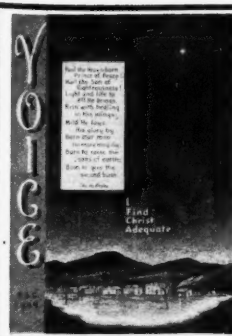 VOICE
Hail the Heav'n-born
Prince of Peace!
Hail the Sun of
Righteousness!
Light and life to
all he brings
Risen with healing
in his wings,
Mild He lays
His glory by
Born that man
no more may die
Born to raise the
sons of earth
Born to give
second birth
I
Find
Christ
Adequate